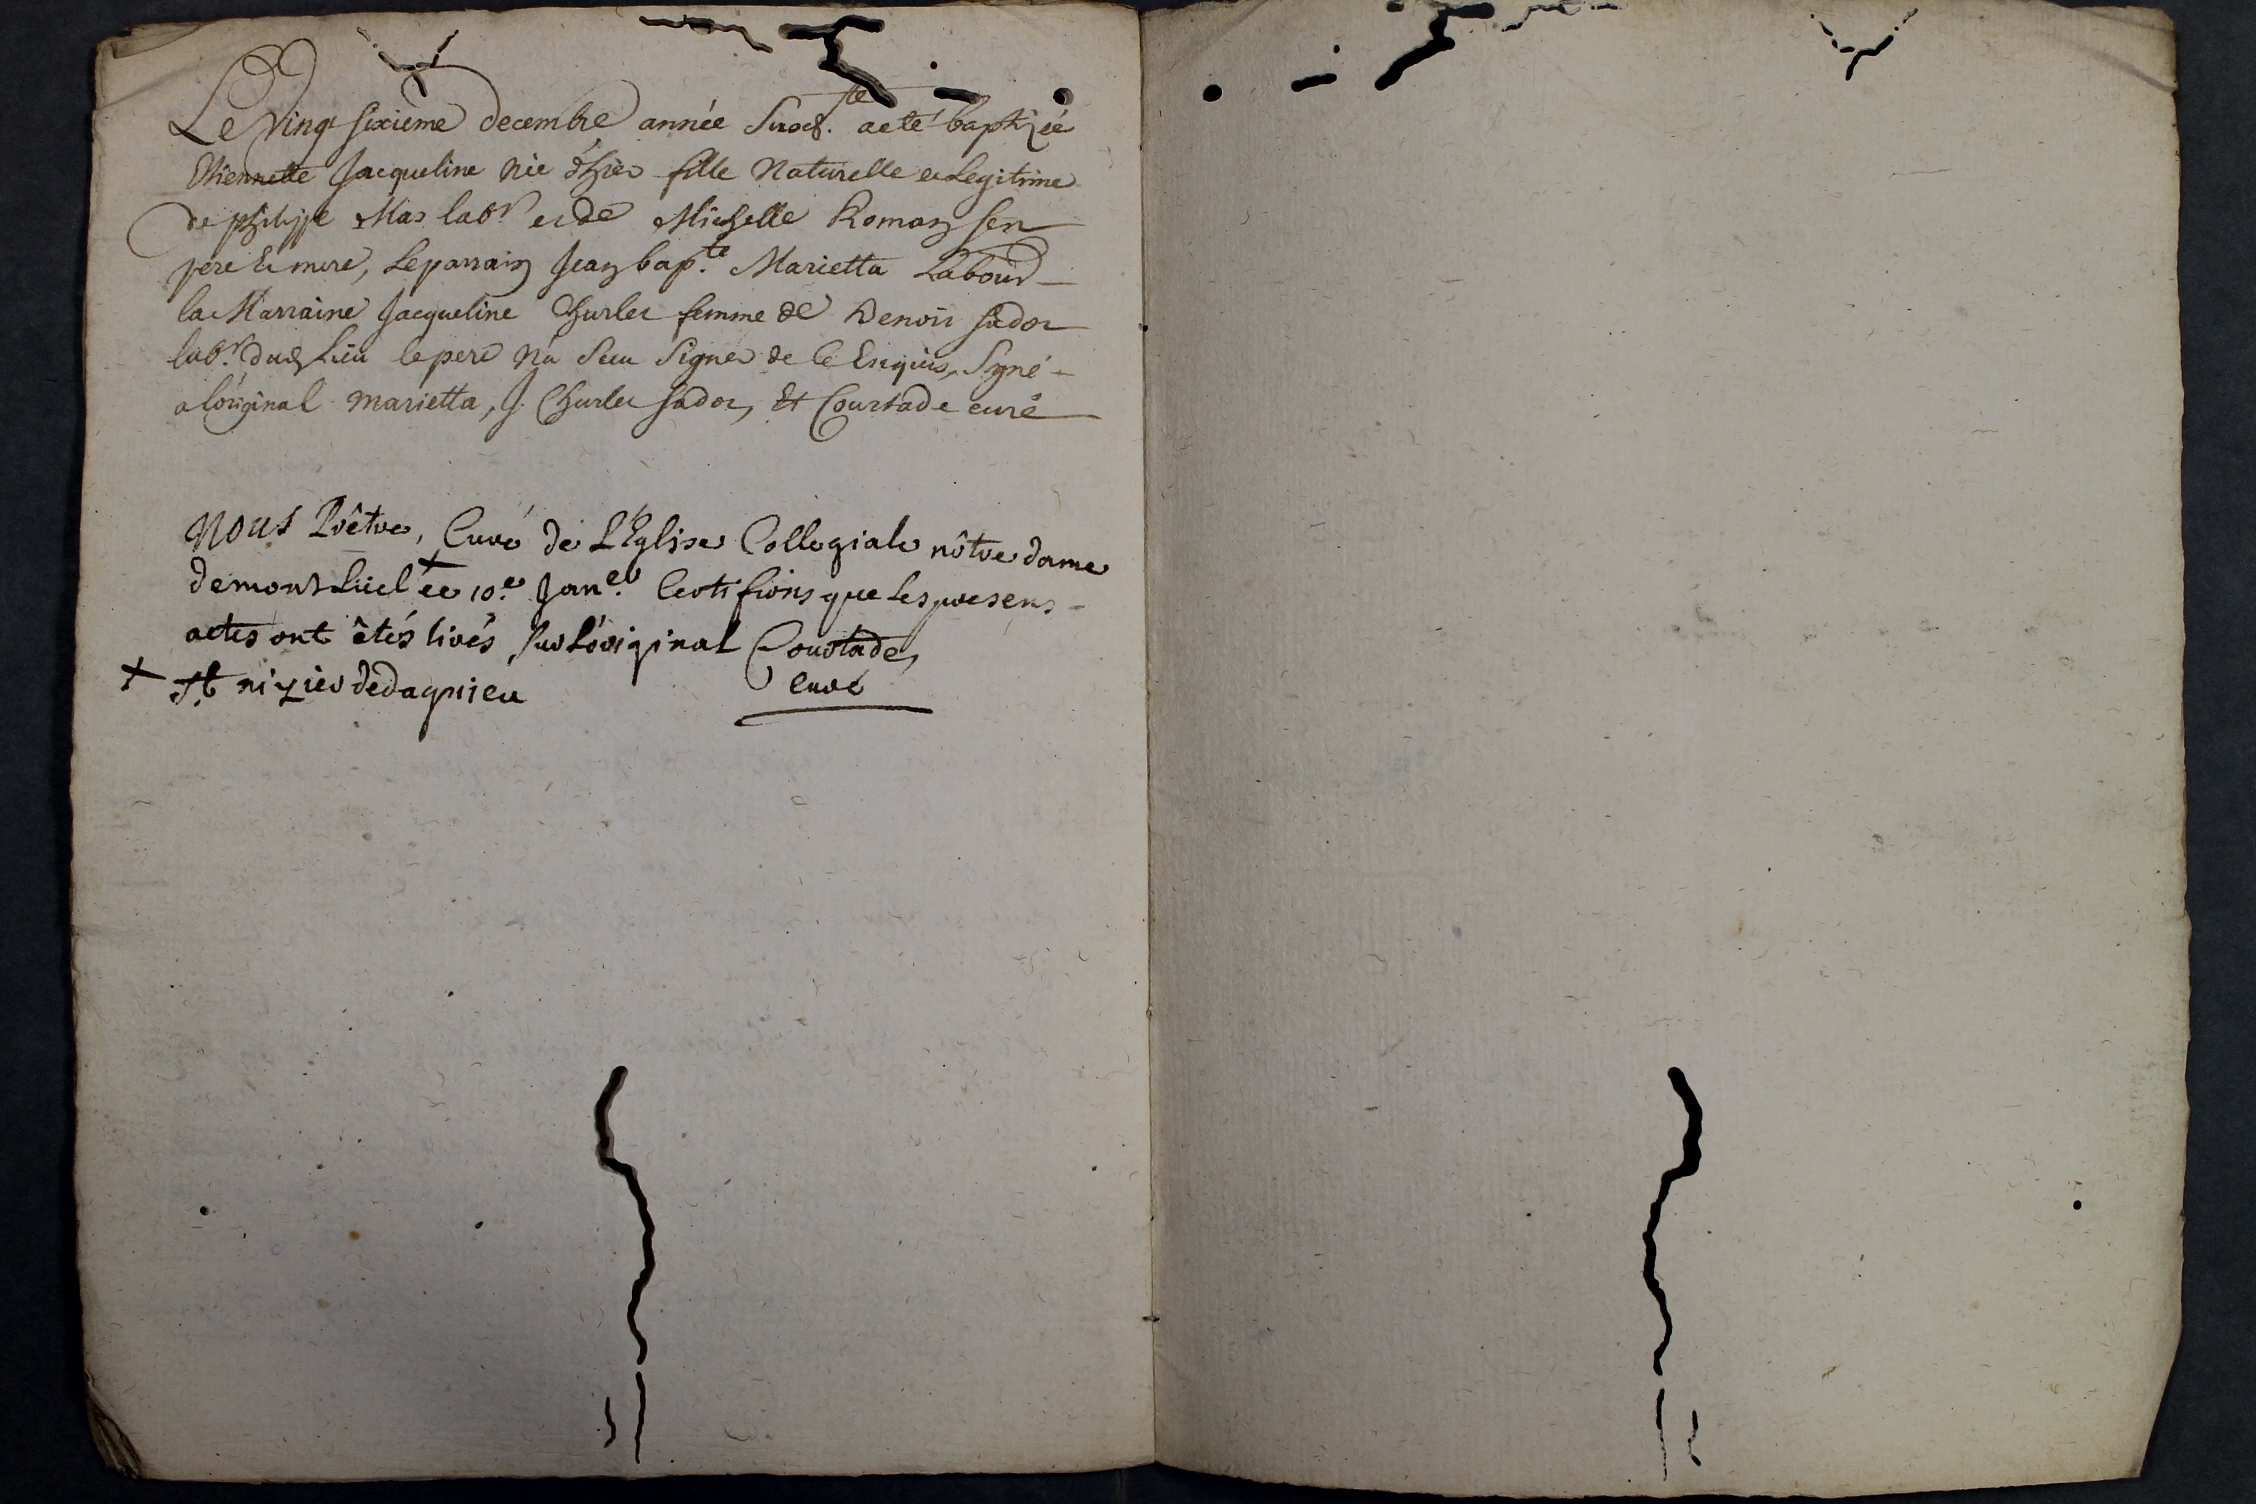 Le Vingt sixieme decembre année Susd.te a eté baptizeé
Etiennette Jacqueline née d'hier fille Naturelle et Legitime
de philippe Mas lab.r et de Michelle Roman ses
pere et mere, Le parrain Jean bap.te Marietta Labour
la Marraine Jacqueline Churlet femme de Benoit Sador
lab.r dud Lieu le pere n'a Seu Signer de ce Enquis, Signé
a l'original Marietta, J. Churlet Sador, Et Courtade curé
Nous Prêtre, Curé de L'Eglise Collegiale nôtre dame
de montluel + ce 10.e Jan.er Certifions que Les presens
actes ont êtés tirés Sur L'original Courtade,
Curé
+ st nizier de dagnieu